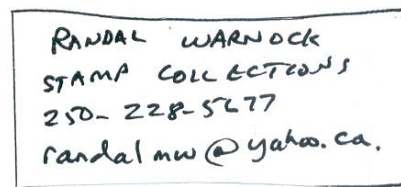 RANDAL WARNOCK
STAMP COLLECTIONS
250-228-5677
randalmw@yahoo.ca.